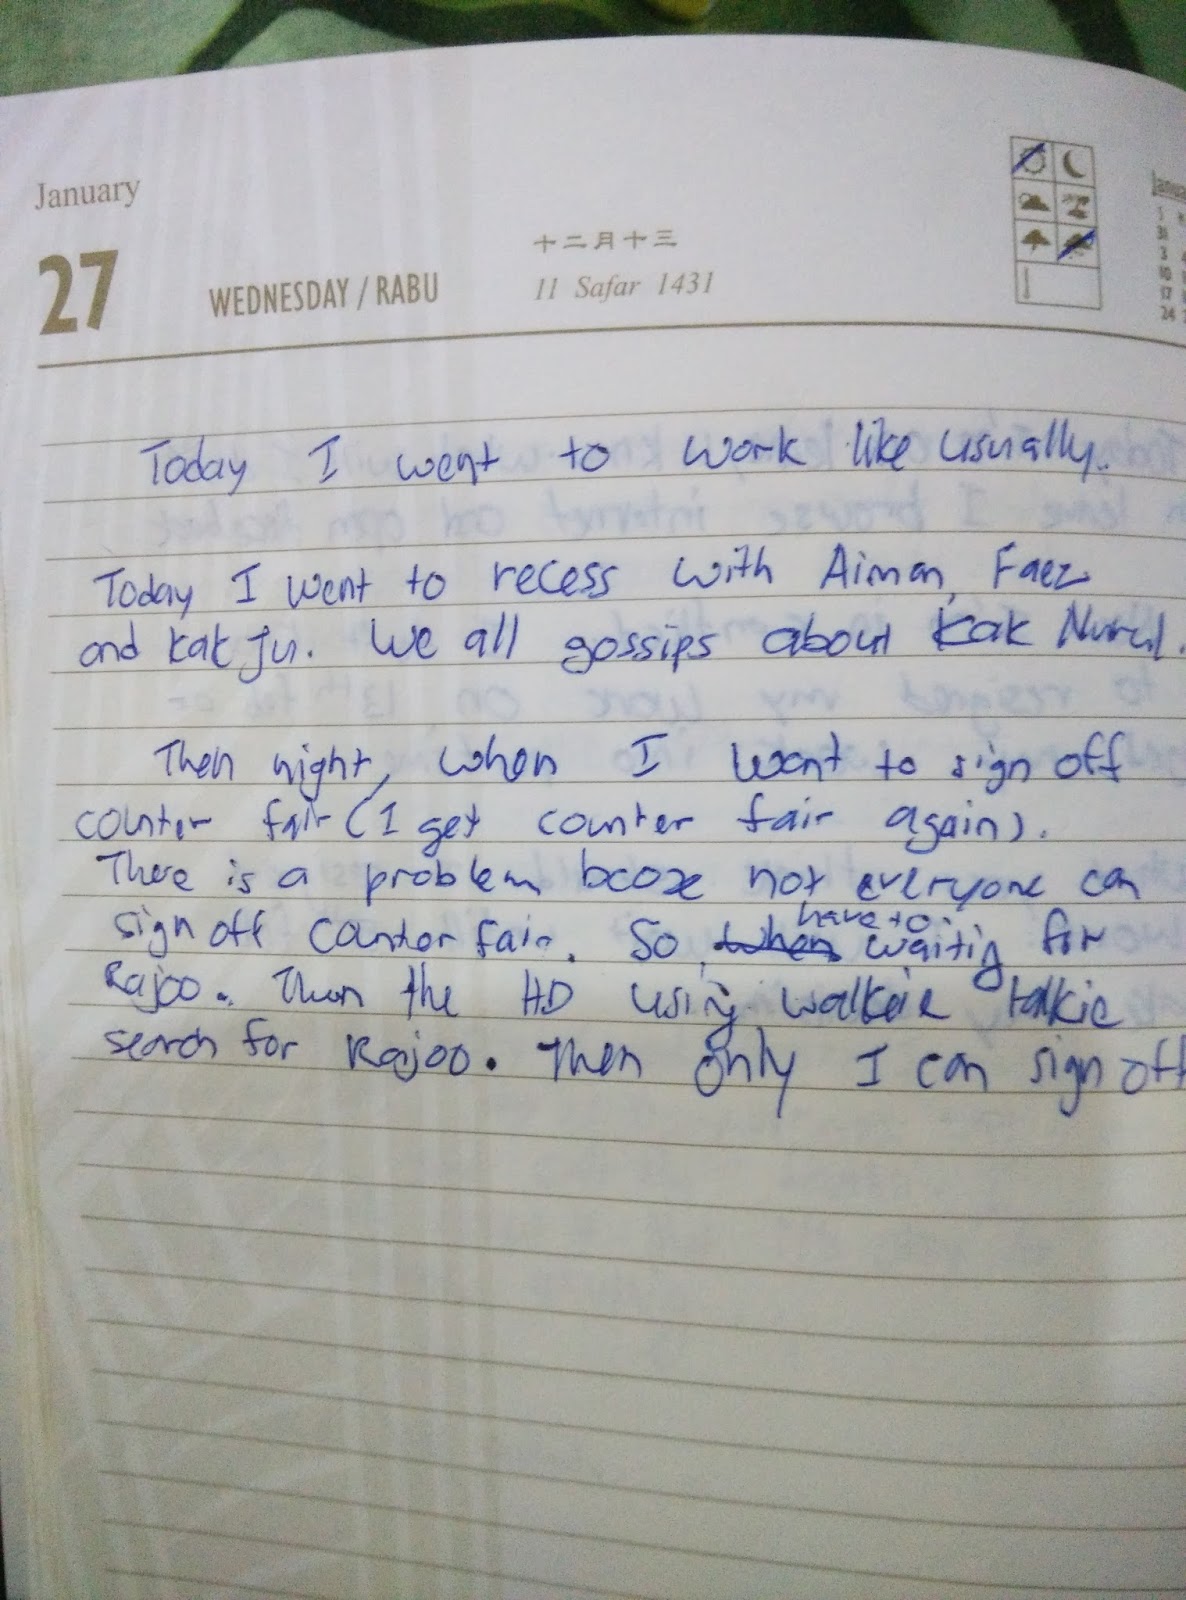 January
27 WEDNESDAY / RABU
十二月十三
11 Safar 1431
Today I went to work like usually.
Today I went to recess with Aiman, Faez
and Kak Ju. We all gossips about Kak Nurul.
Then night, when I want to sign off
counter fair (I get counter fair again).
There is a problem bcoz not everyone can
sign off counter fair. So, have to waiting for
Rajoo. Then the HD using walkie talkie
search for Rajoo. Then only I can sign off